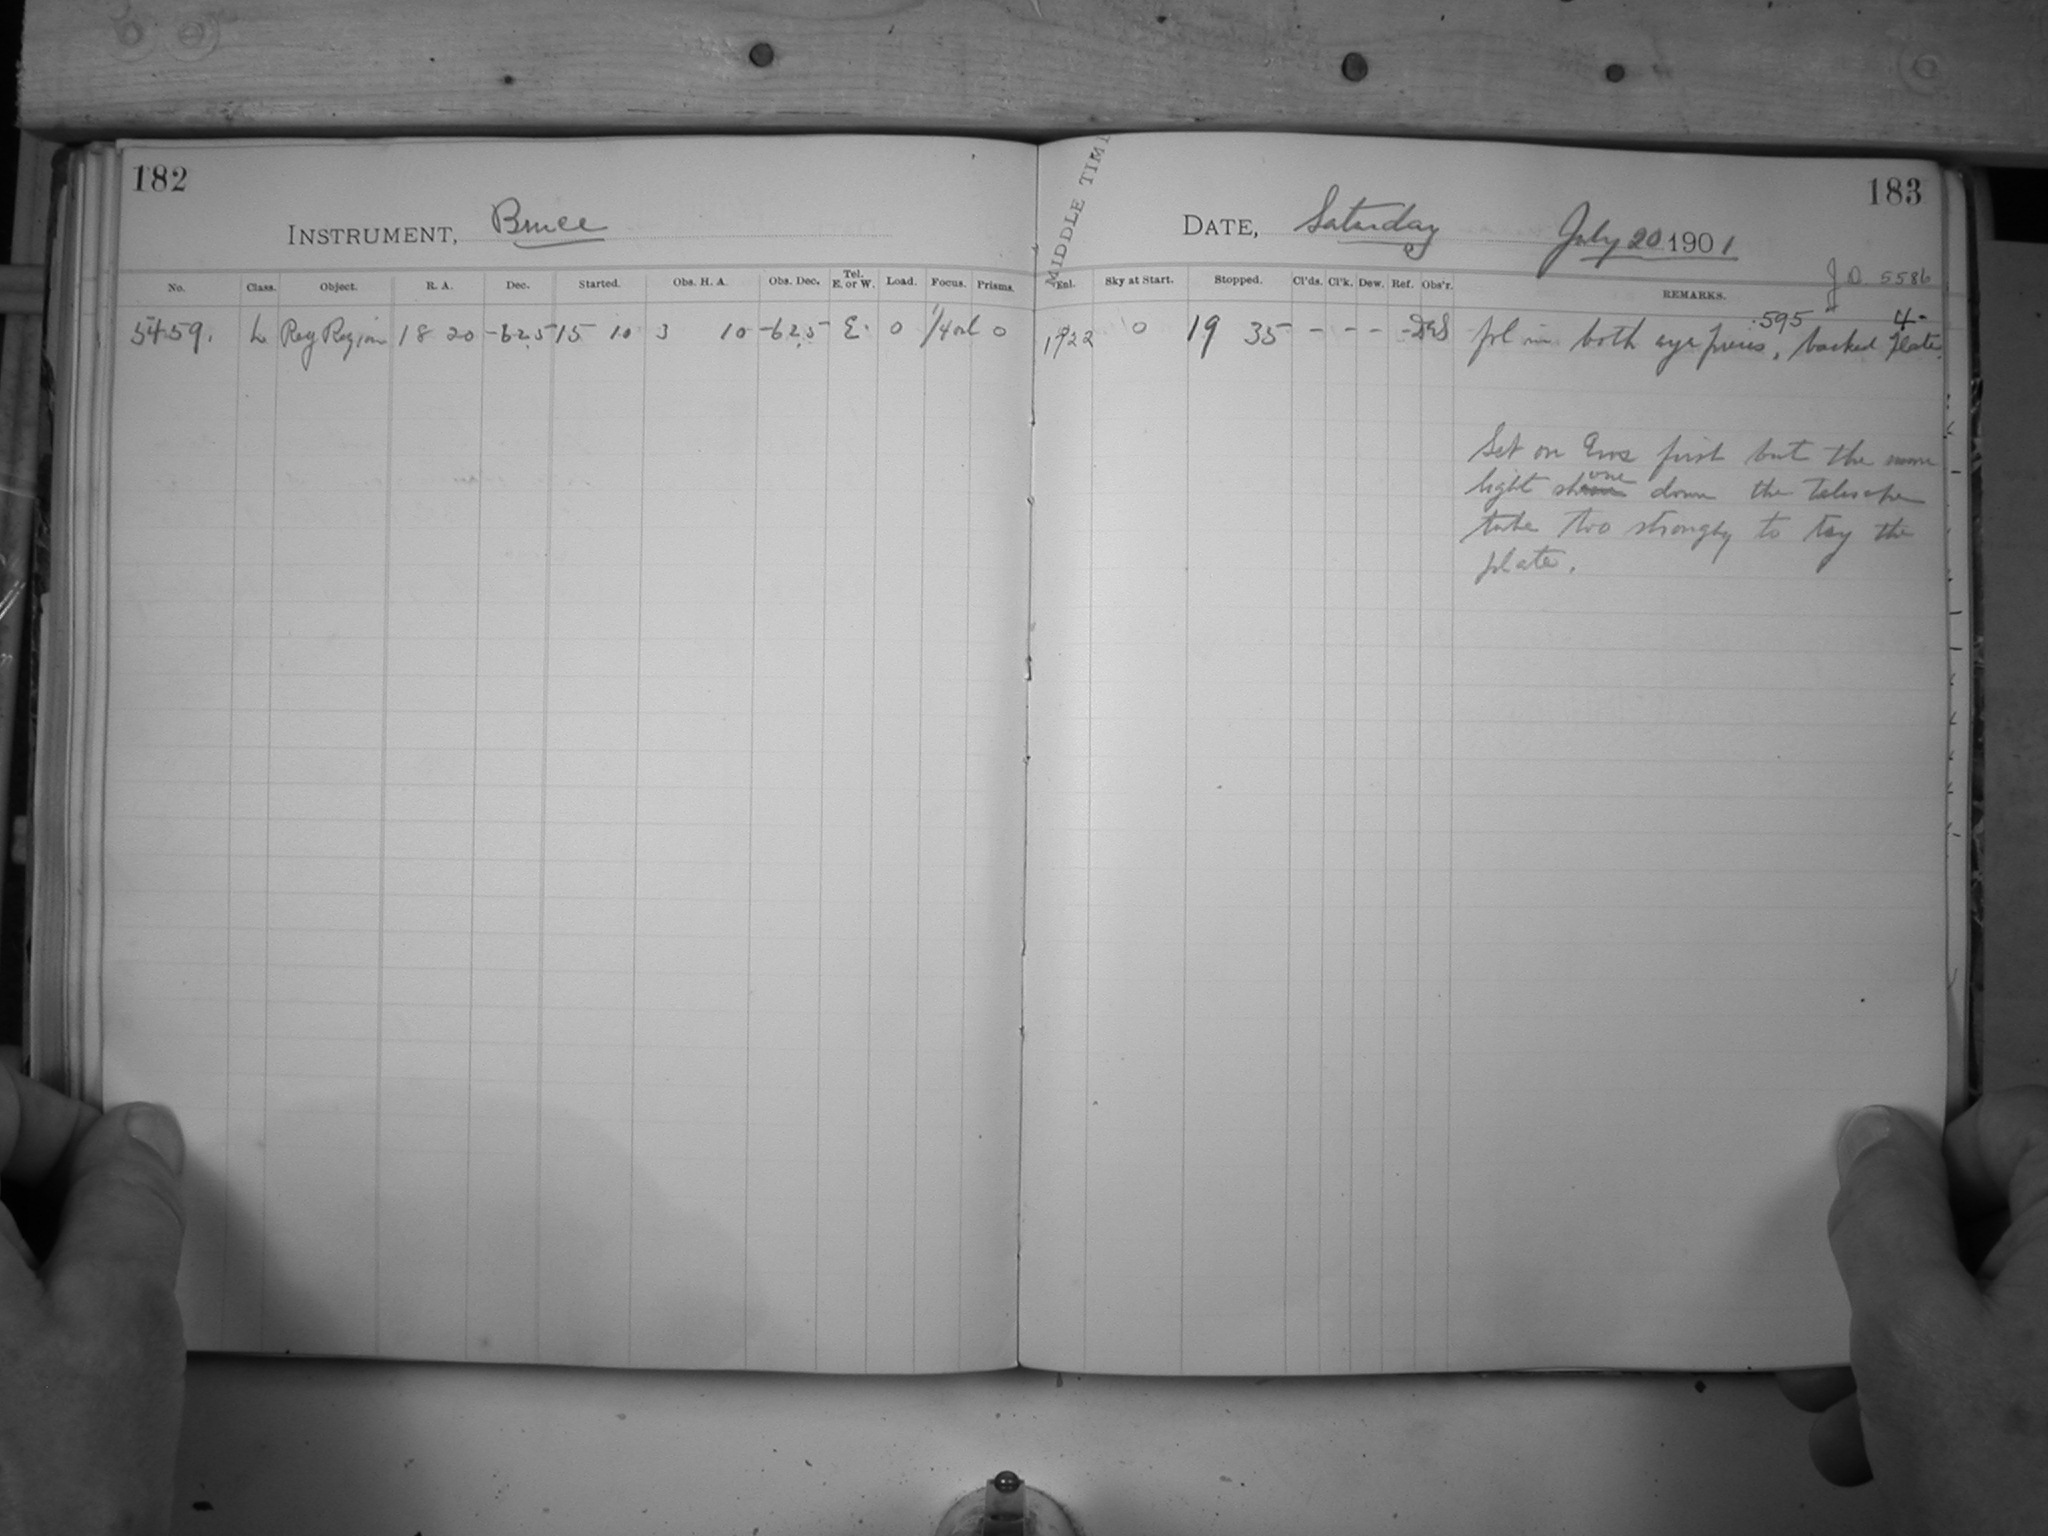 182
INSTRUMENT, Bruce
No. Class. Object. R. A. Dec. Started. Obs. H. A. Obs. Dec. Tel. E. or W. Load. Focus. Prisms.
5459. L Reg Region 18 20 -62.5 15 10 3 10 -62.5 E. 0 0
MIDDLE TIME
183
DATE, Saturday July 20 1901
J.D. 5586
Enl. Sky at Start. Stopped. Cl'ds. Cl'k. Dew. Ref. Obs'r. REMARKS.
.595 4-
1922 0 19 35 - - - - in both eye pieces, backed plate.
Set on Eros first but the moon
light shone down the telescope
tube too strongly to try the
plate.